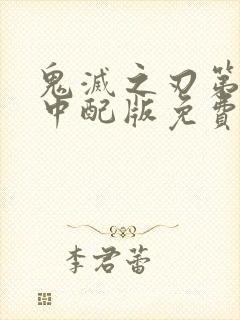 鬼滅之刃第
中配版免費
李君蕾